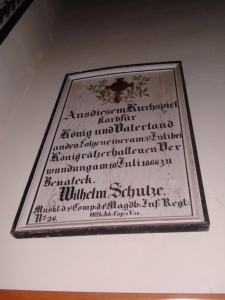 Aus diesem Kirchspiel
starb für
König und Vaterland
an den Folgen einer am 3 Juli bei
Königrätz erhaltenen Ver
wundung am 10 Juli 1866 zu
Benateck.
Wilhelm Schulze.
Muskt. d. Comp. d. Magdb. Inf. Regt.
No 26.